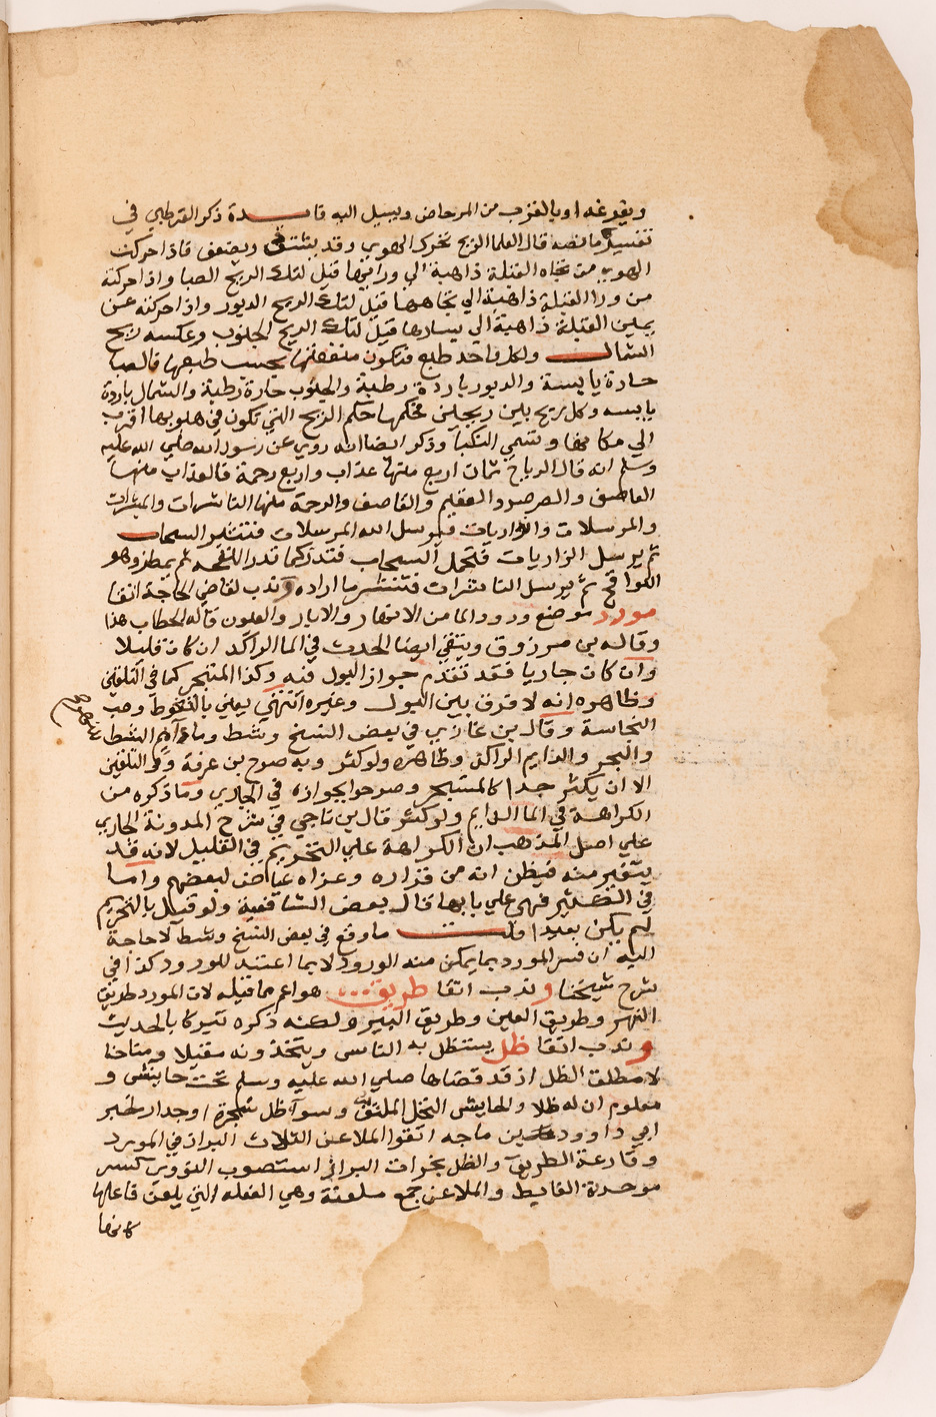 ويفرغه او بالقرب من المرحاض ويسيل اليه فايدة ذكر القرطبي في
تفسيره ما نصه قال العلما الريح تحرك الهوي وقد يشتد ويضعف فاذا حركت
الهوي من تجاه القبلة ذاهبة الي ورايها قيل لتلك الريح الصبا واذا حركته
من ورا القبلة ذاهبة الي تجاهها قيل لتلك الريح الدبور واذا حركته عن
يمين القبلة ذاهبة الي يسارها قيل لتلك الريح الجنوب وعكسه ريح
الشمال ولكل واحد طبع فتكون منفعتها بحسب طبعها فالصبا
حارة يابسة والدبور باردة رطبة والجنوب حارة رطبة والشمال باردة
يابسه وكل ريح بين ريحين فحكمها حكم الريح التي تكون في هبوبها اقرب
الي مكانها وتسمي النكبآ وذكر ايضا انه روي عن رسول الله صلي الله عليه
وسلم انه قال الرياح ثمان اربع منها عذاب واربع رحمة فالعذاب منها
العاصف والصرصر والعقيم والقاصف والرحمة منها الناشرات والمبشرات
والمرسلات والذاريات فيرسل الله المرسلات فتنثير السحاب
ثم يرسل الزاريات فتحمل السحاب فتدر كما تدر اللقحه ثم يمطر وهو
اللواقح ثم يرسل الناشرات فتنتشر ما اراده وندب لقاضي الحاجة اتقا
مورد موضع ورود الما من الانهار والابار والعيون قاله الحطاب هذا
وقاله بن مرزوق ويتقي ايضا الحدث في الما الراكد ان كان قليلا
وان كان جاريا فقد تقدم جواز البول فيه وكذا المتبحر كما في التلقين
وظاهره انه لا فرق بين البول وغيره انتهي يعني بالتغوط وصب
النجاسة وقال بن غازي في بعض النسخ وشط وما دايم الشط
والبحر والدايم الراكد وظاهره ولو كثر وبه صرح بن عرفة وفي التلقين
الا ان يكثر جدا كالمستبحر وصرحوا بجوازه في الجاري وما ذكره من
الكراهة في الما الدايم ولو كثر قال بن ناجي في شرح المدونة الجاري
علي اصل المذهب ان الكراهة علي التحريم في القليل لانه قد
يتغير منه فيظن انه من قراره وعزاه عياض لبعضهم واما
في الكثير فهي علي بابها قال بعض الشافعية ولو قيل بالتحريم
لم يكن بعيدا قلت ما وقع في بعض النسخ وشط لا حاجة
اليه ان فسر المورد بما يمكن منه الورود لا بما اعتيد للورود كذا في
شرح شيخنا وندب اتقا طريق هو اعم مما قبله لان المورد طريق
النهر وطريق العين وطريق البير ولكنه ذكره تبركا بالحديث
وندب اتقا ظل يستظل به الناس ويتخذونه مقيلا ومناخا
لا مطلق الظل اذ قد قضاها صلي الله عليه وسلم تحت حايش و
معلوم ان له ظلا والحايش النخل الملتف وسوآ ظل شجرة او جدار لخبر
ابي داوود بن ماجه اتقوا الملاعن الثلاث البراز في المورد
وقارعة الطريق والظل البراز استصوب النووي كسر
موحدته الغايط والملاعن جمع ملعنة وهي الفعله التي يلعن فاعلها
كانها